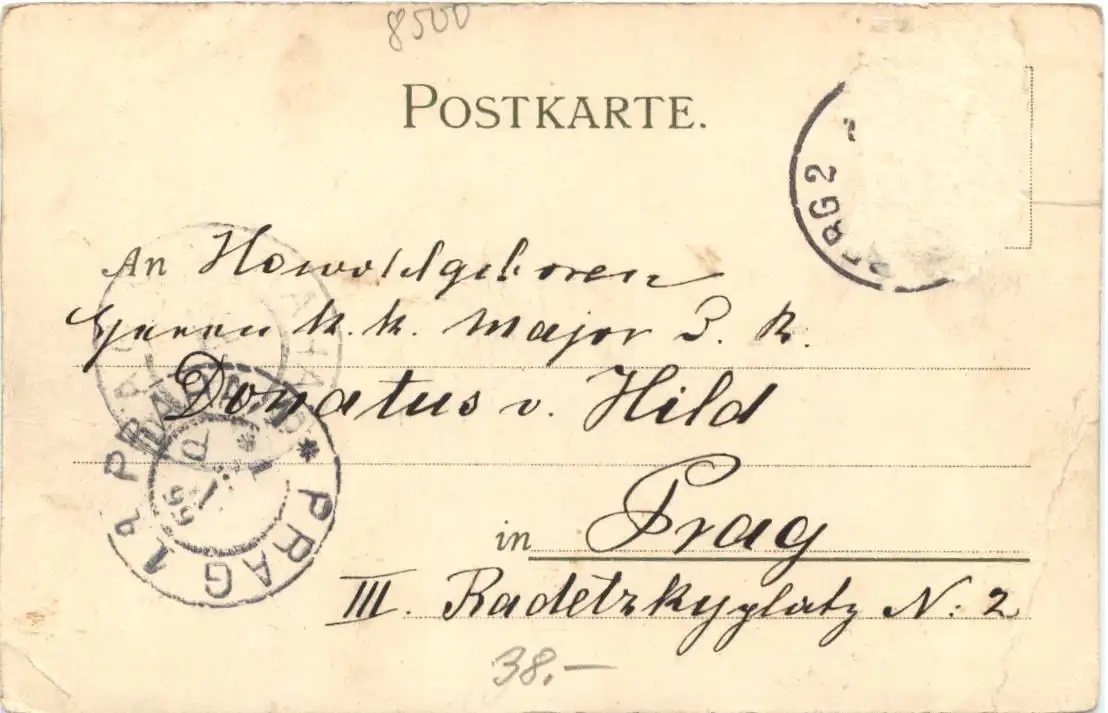 8500
POSTKARTE.
ERG 2
An Howohlgeboren
Herrn k. k. Major I. R.
Donatus v. Hild
in Prag
III. Radetzkyplatz N: 2
PRAG 1 a * PRAHA 1 *
38.-